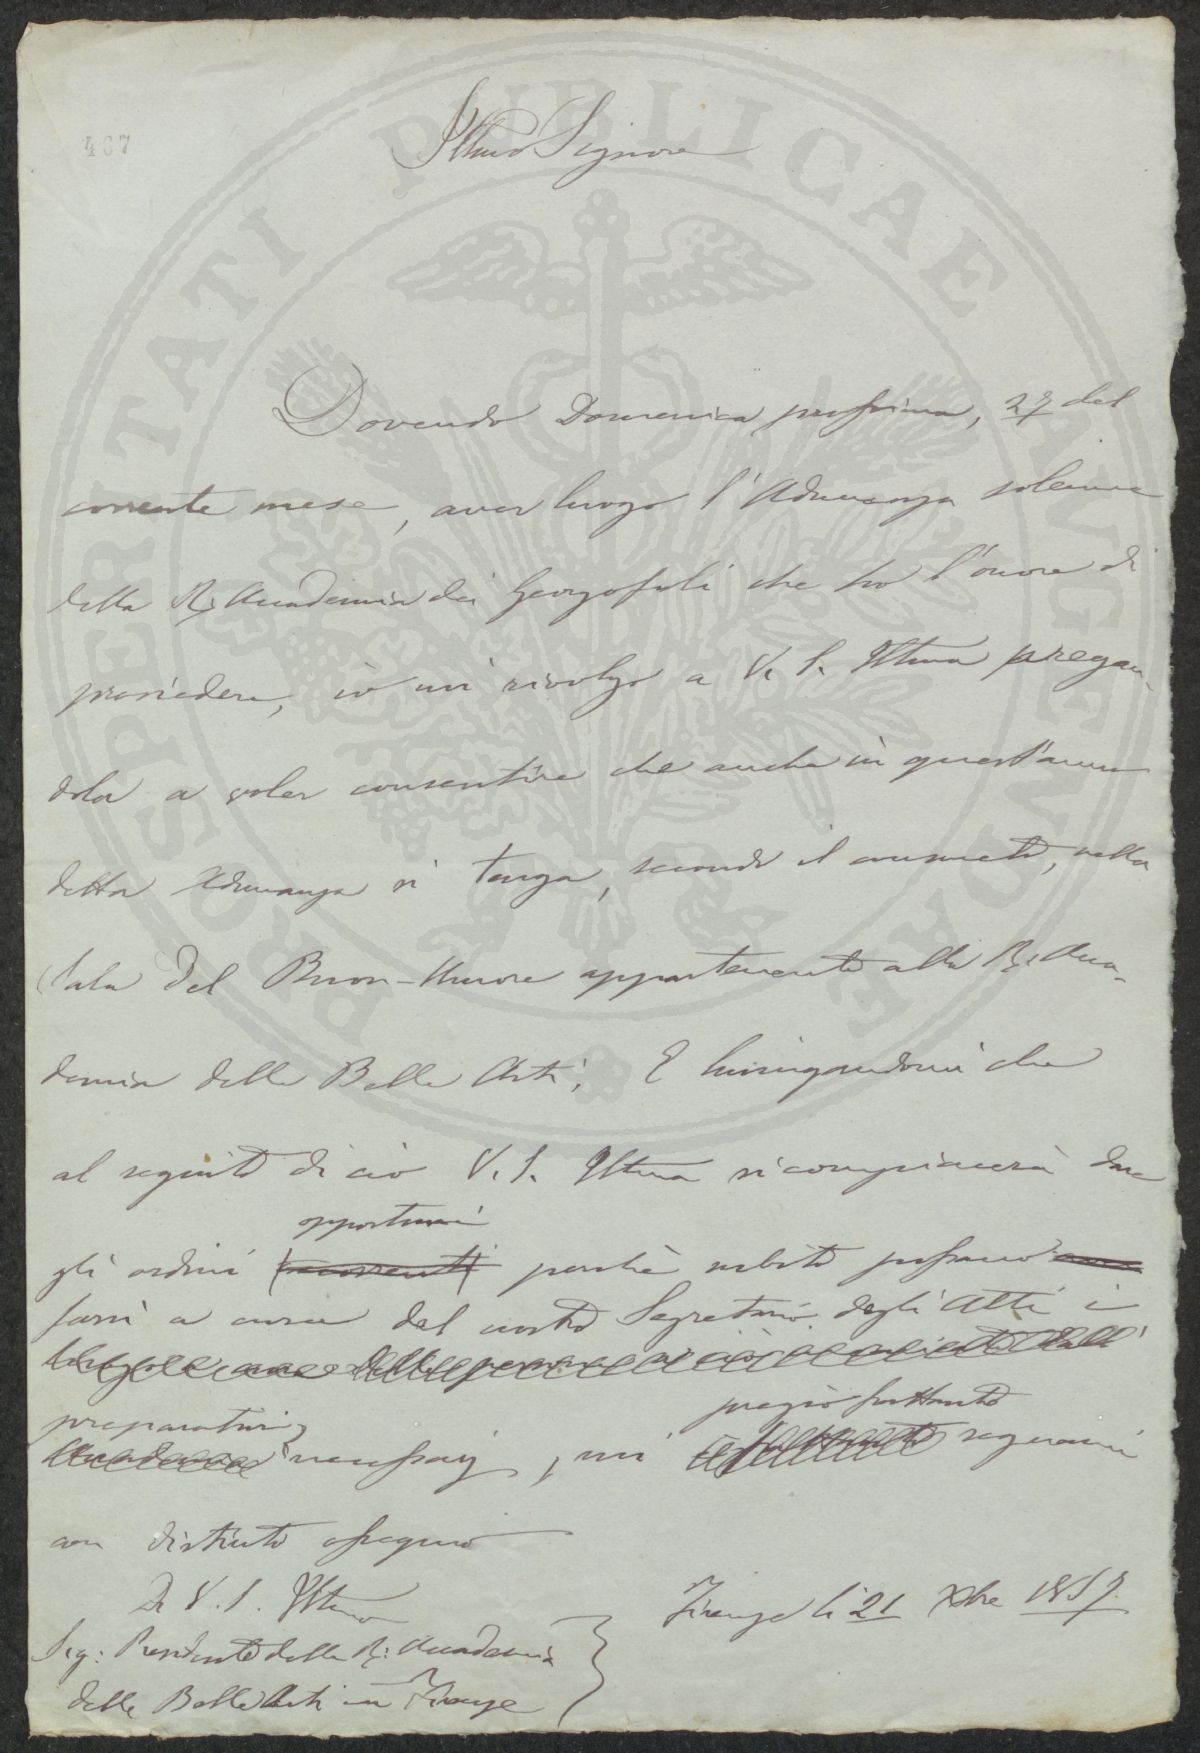 407
Illmo Signore
Dovendo Domenica prossima, 27 del
corrente mese, aver luogo l'Adunanza solenne
della R. Accademia dei Georgofili che ho l'onore di
presiedere, io mi rivolgo a V. S. Illma pregan-
dola a voler consentire che anche in quest'anno
detta Adunanza si tenga, secondo il consueto, nella
Sala del Buon-Umore appartenente alla R. Acca-
demia delle Belle Arti. E lusingandomi che
al seguito di ciò V. S. Illma si compiacerà dare
opportuni
gli ordini occorrenti perchè subito possano
farsi a cura del nostro Segretario degli Atti i
preparativi pregio soltanto
necessarj, mi segnarmi
con distinto ossequio
Di V. S. Illma
Firenze li 21 Xbre 1857.
Sig: Presidente della R. Accademia
delle Belle Arti in Firenze
PROSPERITATI PUBLICAE AUGENDAE